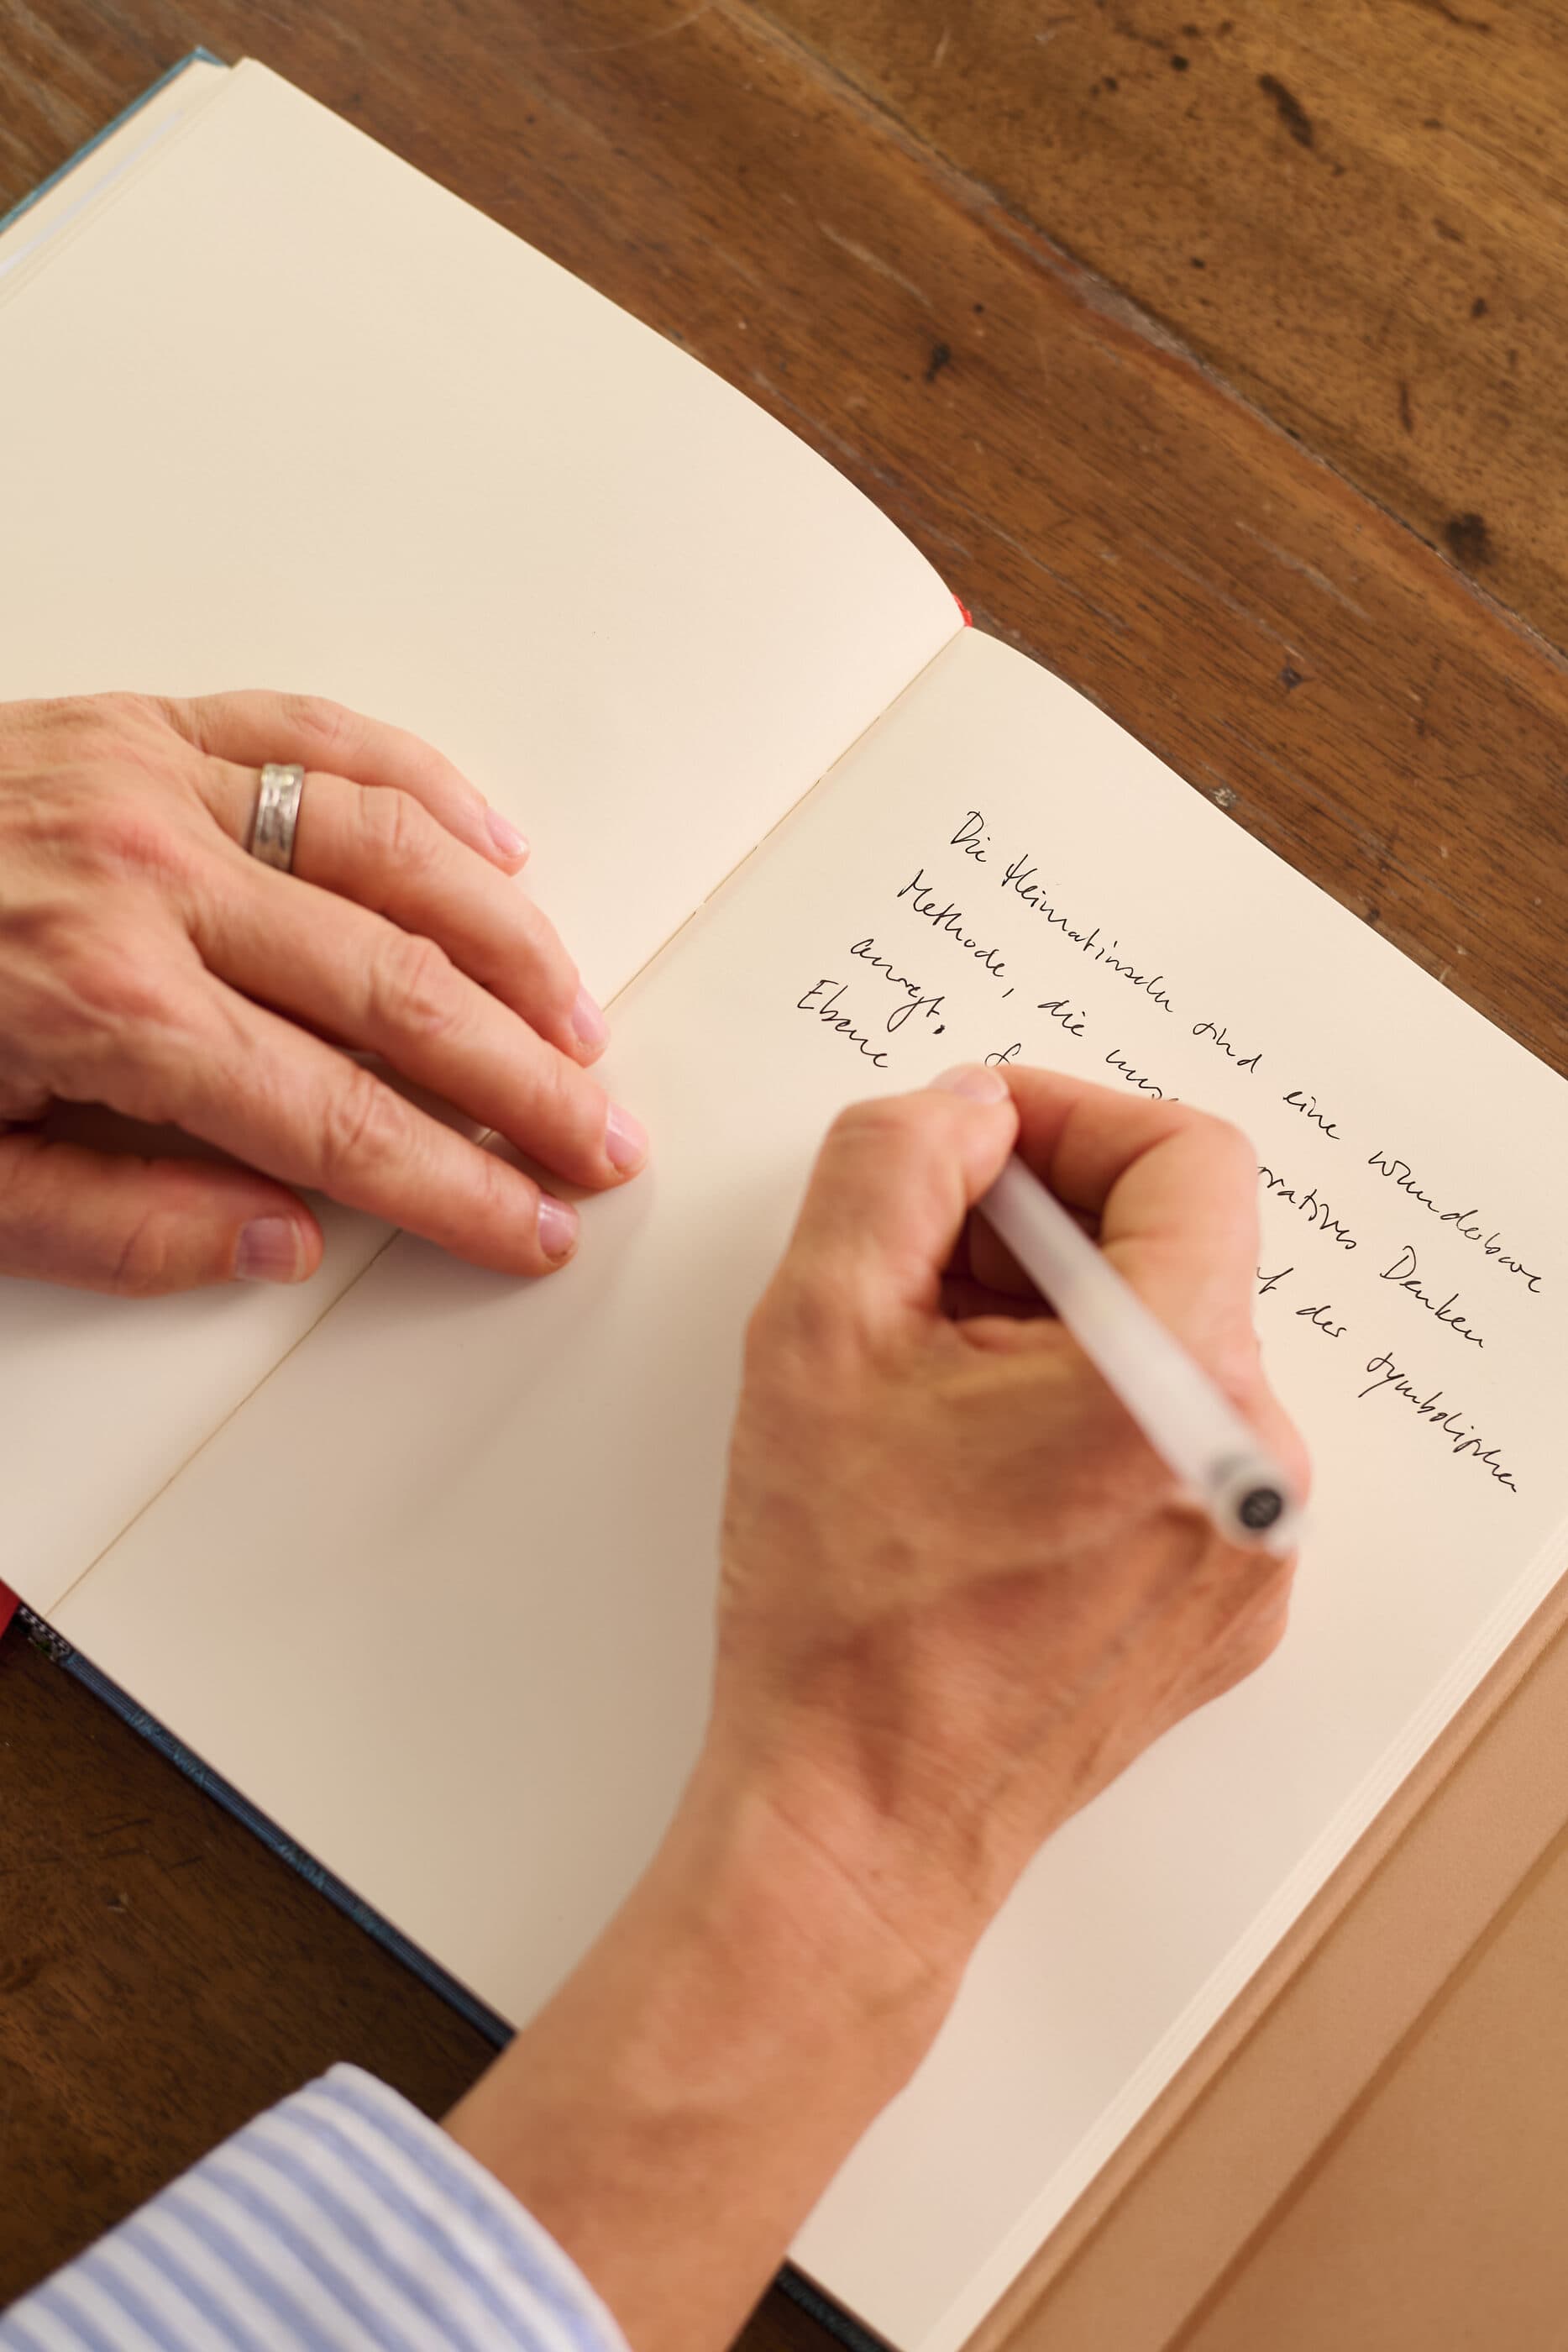 Die Heimatinseln sind eine wunderbare
Methode, die uns Denken
anregt. der symbolischen
Ebene